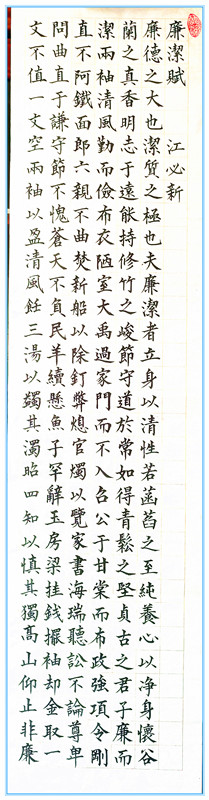 廉潔賦 江必新
廉德之大也潔質之極也夫廉潔者立身以清性若菡萏之至純養心以净身懷谷
蘭之真香明志于遠能持修竹之峻節守道於常如得青鬆之堅貞古之君子廉而
潔兩袖清風勤而儉布衣陋室大禹過家門而不入召公于甘棠而布政強項令剛
直不阿鐵面郎六親不曲焚新船以除釘弊熄官燭以覽家書海瑞聽訟不論尊卑
問曲直于謙守節不愧蒼天不負民羊續懸魚子罕辭玉房梁挂錢撮袖却金取一
文不值一文空兩袖以盈清風飪三湯以蠲其濁昭四知以慎其獨高山仰止非廉